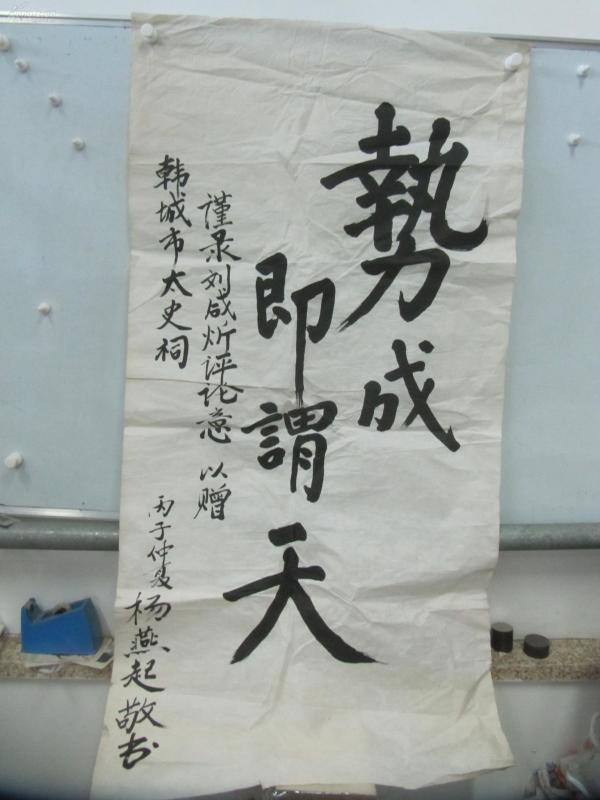 勢成
即謂天
謹录刘咸炘评论意 以赠
韩城市太史祠
丙子仲夏 杨燕起敬书